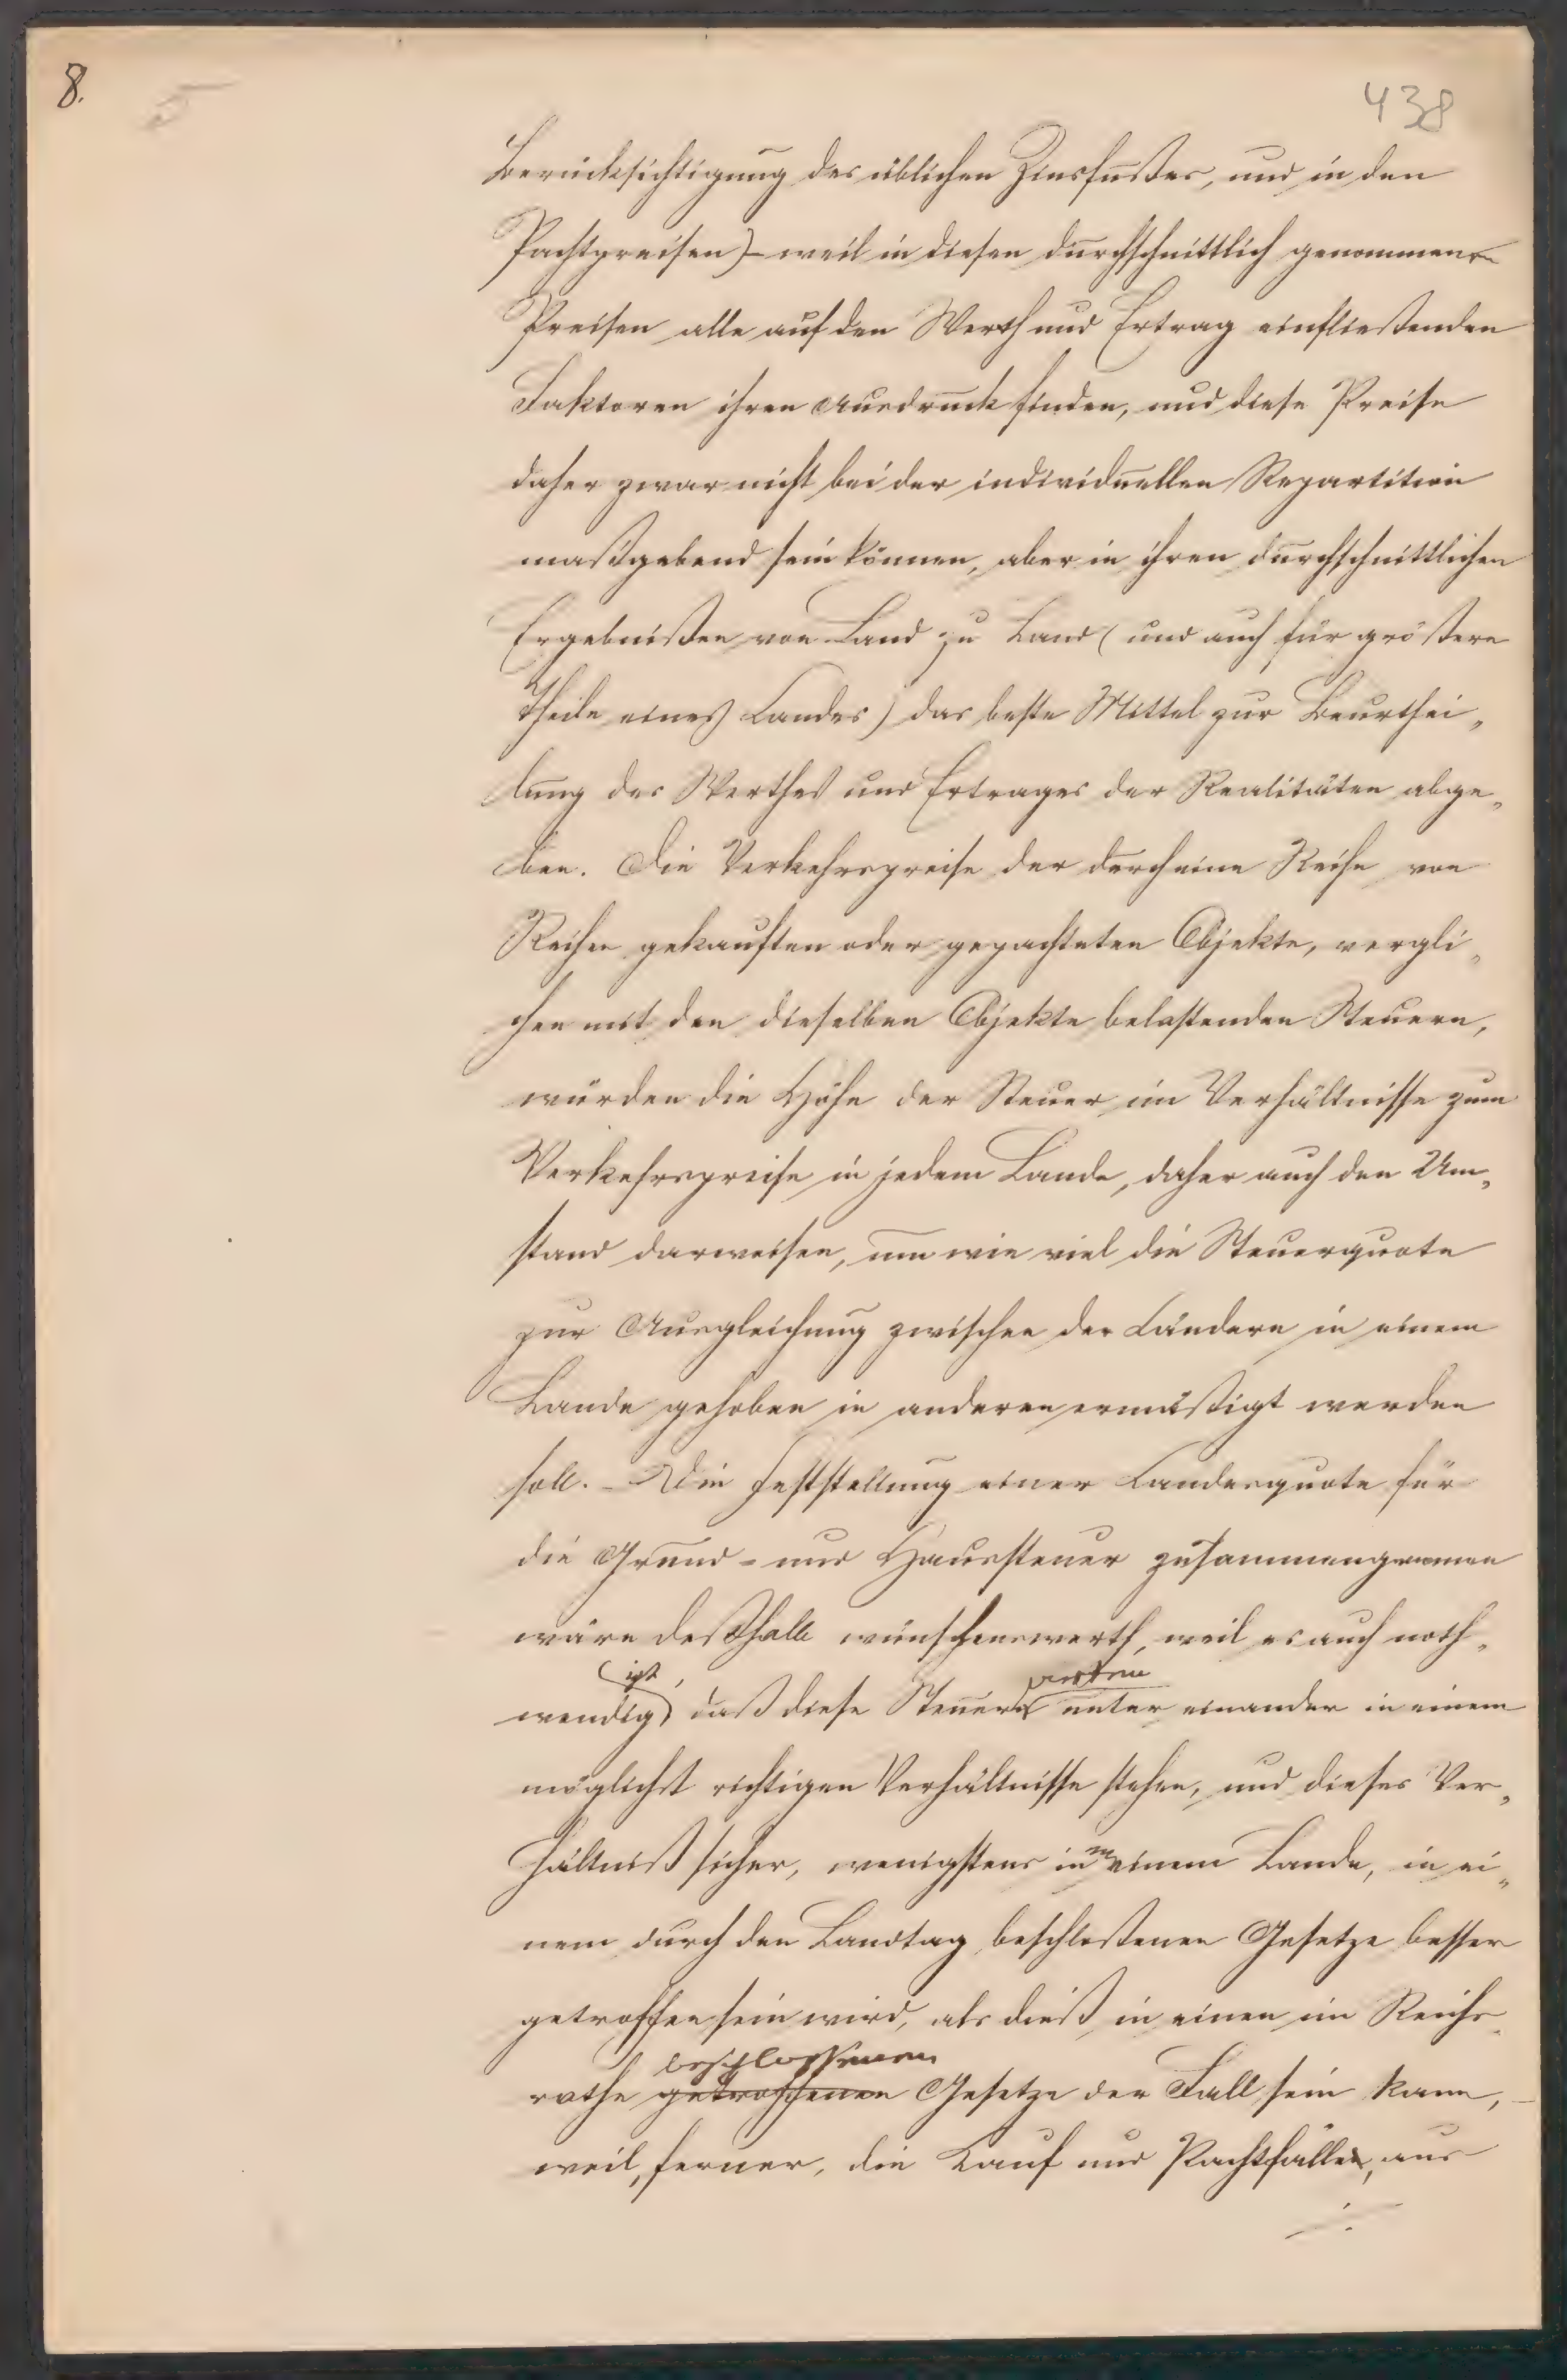 8.
438
Berücksichtigung des üblichen Zinsfußes, und in den
Pachtpreisen) – weil in diesen durchschnittlich genommenen
Preisen alle auf den Werth und Ertrag einfließenden
Faktoren ihren Ausdruck finden, und diese Preise
daher zwar nicht bei der individuellen Repartition
maßgebend sein können, aber in ihren durchschnittlichen
Ergebnißen von Land zu Land (und auch für größere
Theile eines Landes) das beste Mittel zur Beurthei„
lung des Werthes und Ertrages der Realitäten abge„
ben. Die Verkehrspreise der durch eine Reihe von
Reihen gekauften oder gepachteten Objekte, vergli„
chen mit den dieselben Objekte belastenden Steuern,
würden die Höhe der Steuer im Verhältnisse zum
Verkehrspreise in jedem Lande, daher auch den Um„
stand darweisen, um wie viel die Steuerquote
zur Ausgleichung zwischen den Ländern in einem
Lande gehoben in anderen ermäßigt werden
soll. – Die Feststellung einer Landesquote für
die Grund- und Haussteuer zusammengenommen
wäre deßhalb wünschenswerth, weil es auch noth„
ist,
wendig daß diese Steuern unter einander in einem
möglichst richtigen Verhältnisse stehen, und dieses Ver„
hältniß sicher, wenigstens in einem Lande, in ei„
nem durch den Landtag beschloßenen Gesetze besser
getroffen sein wird, als dieß in einem im Reichs„
beschlossenen
rathe getroffenen Gesetze der Fall sein kann, –
weil, ferner, die Kauf und Pachtfälle, aus
./.